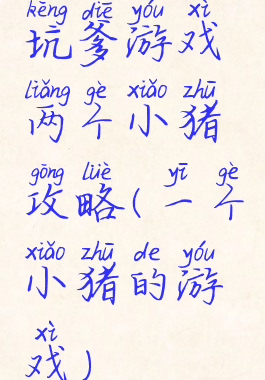 kēng diē yóu xì
坑爹游戏
liǎng gè xiǎo zhū
两个小猪
gōng lüè yī gè
攻略(一个
xiǎo zhū de yóu
小猪的游
xì
戏)